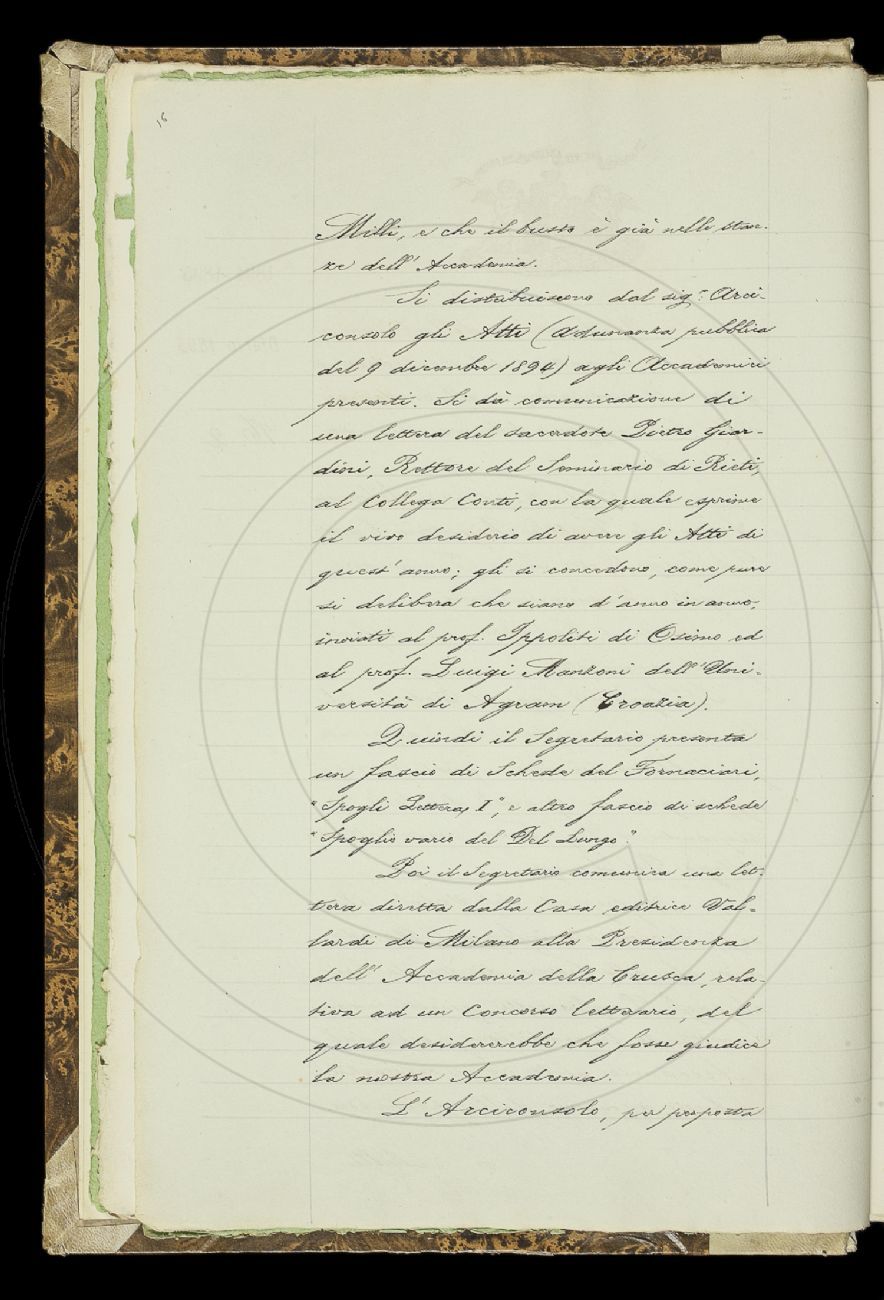 16
Milli, e che il busto è già nelle stan-
ze dell' Accademia.
Si distribuiscono dal sig.r Arci-
consolo gli Atti (Adunanza pubblica
del 9 dicembre 1894) agli Accademici
presenti. Si dà comunicazione di
una lettera del sacerdote Pietro Giar-
dini, Rettore del Seminario di Rieti,
al Collega Conti, con la quale esprime
il vivo desiderio di avere gli Atti di
quest' anno; gli si concedono, come pure
si delibera che siano d' anno in anno,
inviati al prof. Ippoliti di Osimo ed
al prof. Luigi Manzoni dell' Uni-
versità di Agram (Croazia).
Quindi il Segretario presenta
un fascio di Schede del Fornaciari,
"Spogli Lettera I", e altro fascio di schede
"Spoglio vario del Del Lungo".
Poi il Segretario comunica una let-
tera diretta dalla Casa editrice Val-
lardi di Milano alla Presidenza
dell' Accademia della Crusca, rela-
tiva ad un Concorso letterario, del
quale desidererebbe che fosse giudice
la nostra Accademia.
L' Arciconsolo, per proposta